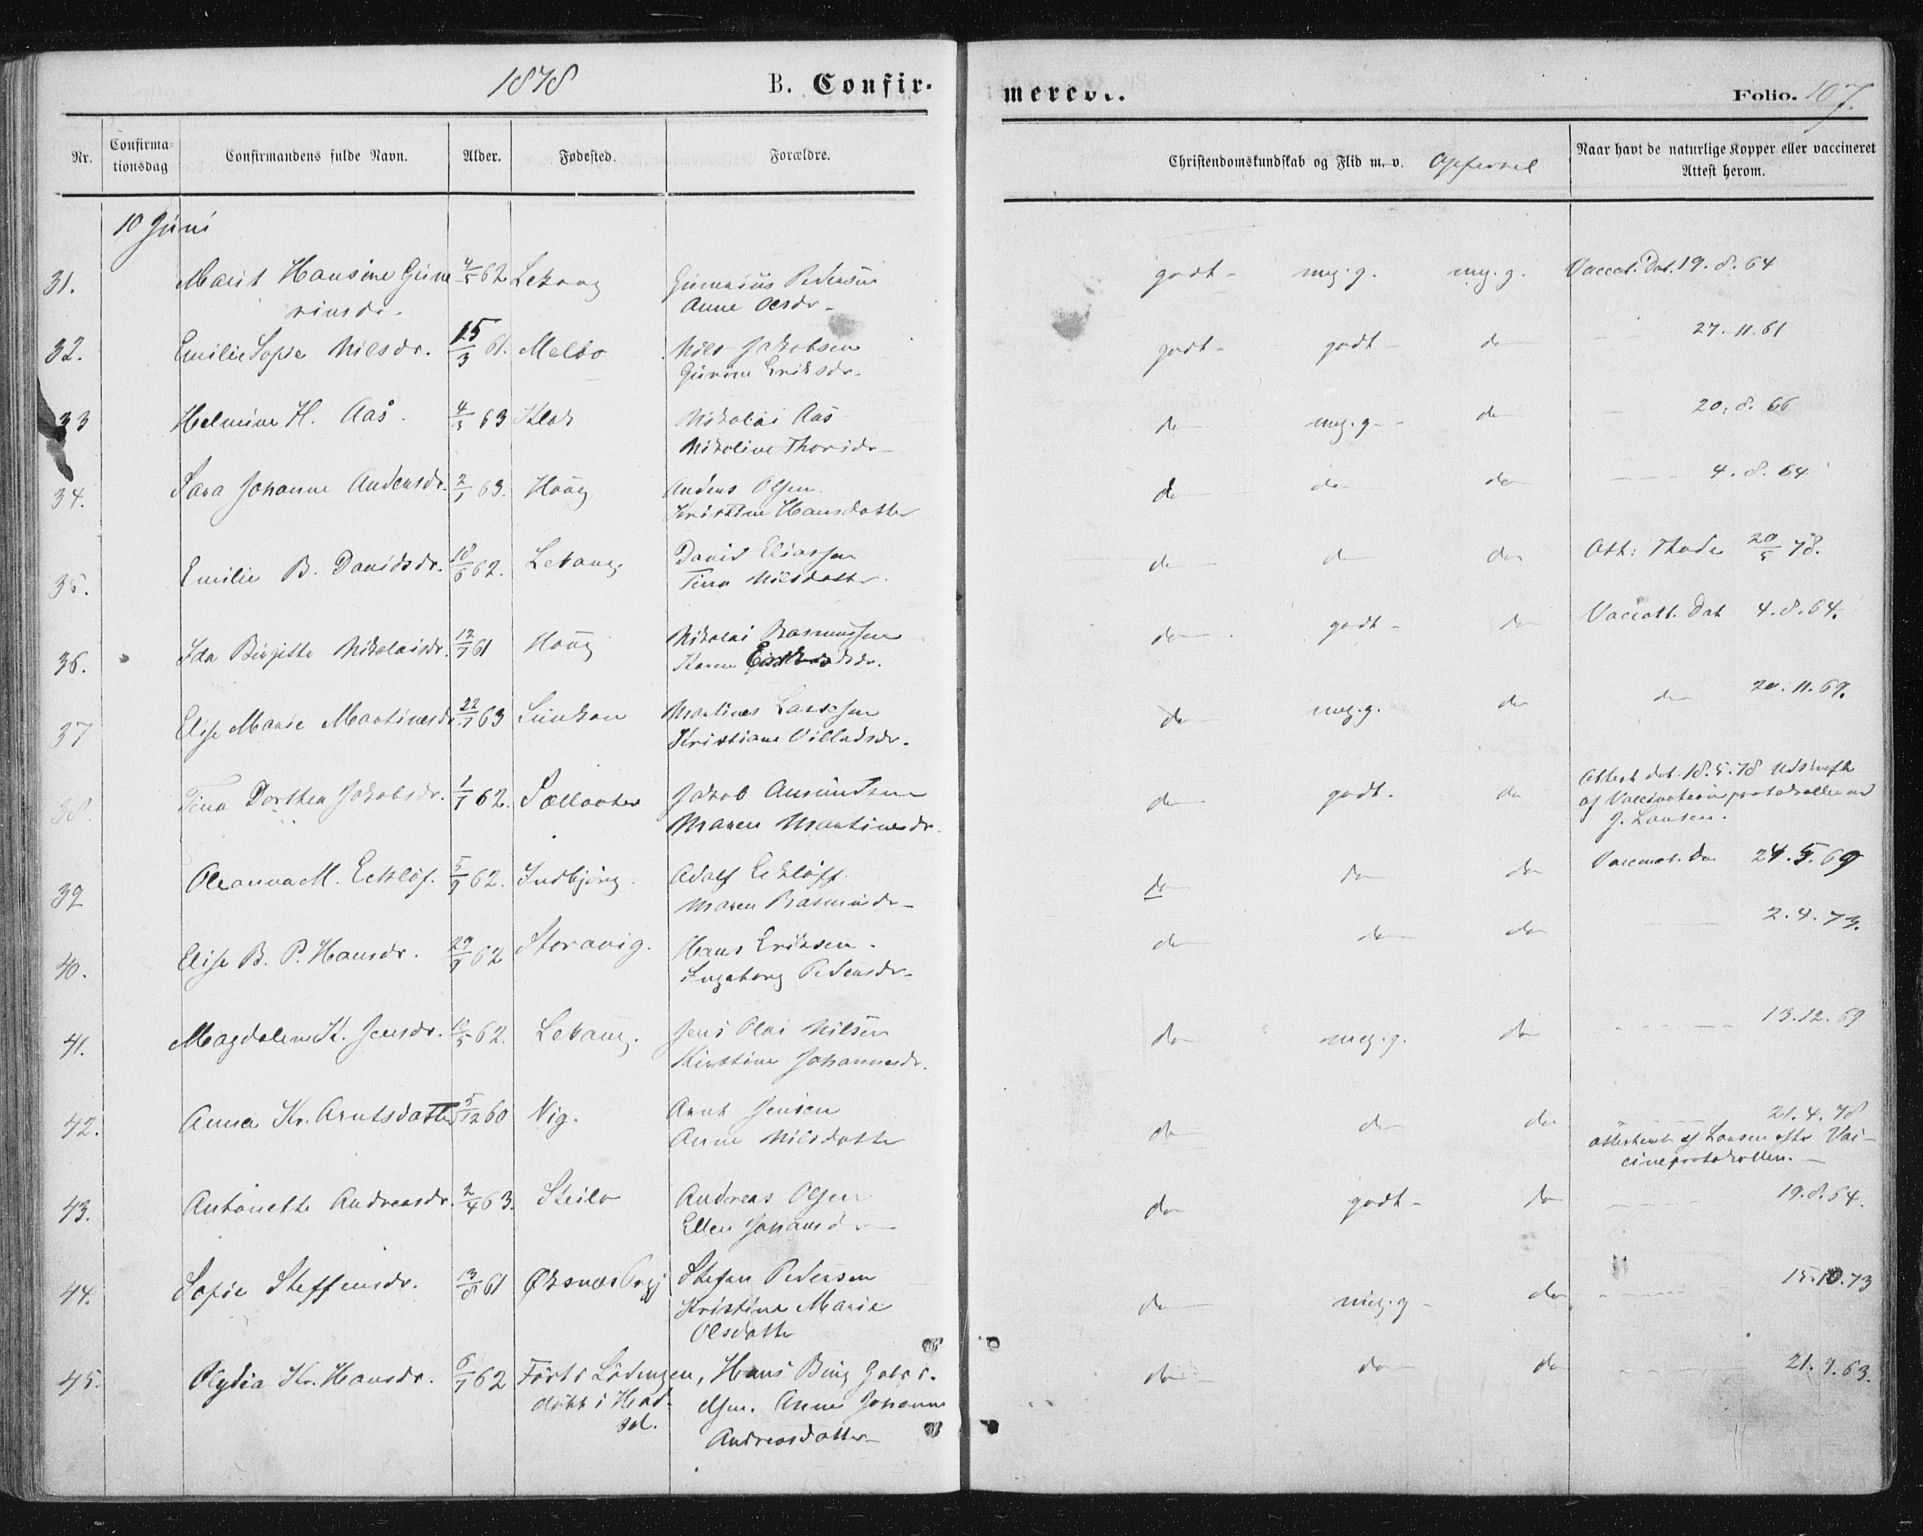 1878 B. Confir- merede. Folio. 107.
Nr. Confirmationsdag Confirmandens fulde Navn. Alder. Fødested. Forældre. Christendomskundskab og Flid m. v. Opførsel Naar havt de naturlige Kopper eller vaccineret Attest herom.
10 Juni
31. Marit Hansine Gune 4/5 62 Lekang Gunerius Pedersen godt - meg. g. meg. g. Vaccat. Dat. 19. 8. 64
rinsdr. Anne Olsdr -
32. Emilie Sofie Nilsdr. 15/3 61. Melbo Nils Jakobsen godt - godt - do 27. 11. 61
Gurine Eriksdr.
33 Helmine H. Aas. 63 Nikolai Aas do meg. g. - do 20. 8. 66
Nikoline Thorsdr -
34. Sara Johanne Andersdr. 2/1 63. Haug Anders Olsen. do do do 4. 8. 64
Kristine Hansdatter
35. Emilie B. Davidsdr. 18/6 62. Lekang. David Eliassen do do do Att: Thode 20/5 78.
Tina Nilsdatter.
36. Ida Birgitte Nikolaisdr. 12/7 61 Haug Nikolai Rasmussen do godt - do Vaccatt. Dat 4. 8. 64.
Karen
37 Elise Marie Martinesdr 22/1 63 Martines Larssen do meg. g. do do 20. 11. 69.
Kristiane Villadsdr.
38. Tina Dorthea Jakobsdr. 1/1 62. Jakob Amundsen do godt. do Attest dat. 18. 5. 78 Udskrift
Maren Martinesdr. af Vaccinationsprotokollen ved
J. Lausen.
39 Oleanna M. Ecklöf. 5/9 62. Indbjörg. Adolf Ecklöff. do do do Vaccinat. do 24. 5. 69
Maren Rasmusdr -
40. Elise B. P. Hansdr. 29/9 62 Storavig. Hans Eriksen. do do do 2. 4. 73.
Ingeborg Pedersdr -
41. Magdalene K. Jensdr. 62. Lekang. Jens Olai Nilsen do meg. g. do 13. 12. 69
Kirstine Johannesdr.
42. Anna Kr. Arntsdatter 5/12 60 Vig. Arnt Jensen do do do 21. 4. 78
Anne Nilsdatter attesteret af Lausen efter Vac-
cineprotokollen. -
43. Antonette Andreasdr. 2/4 63. Steilo Andreas Olsen do godt - do 19. 8. 64.
Ellen
44. Sofie Steffensdr. 13/8 61 Øksnæs Prgj Stefan Pedersen do meg. g - do 15. 10. 73
Kristine Marie
Olsdatter
45. Olydia Kr. Hansdr. 6/1 62 Født i Lödingen, Hans Bing Gabri- do do do 21. 9. 63.
döbt i Had- elsen. Anne Johanne
sel. Andreasdatter -